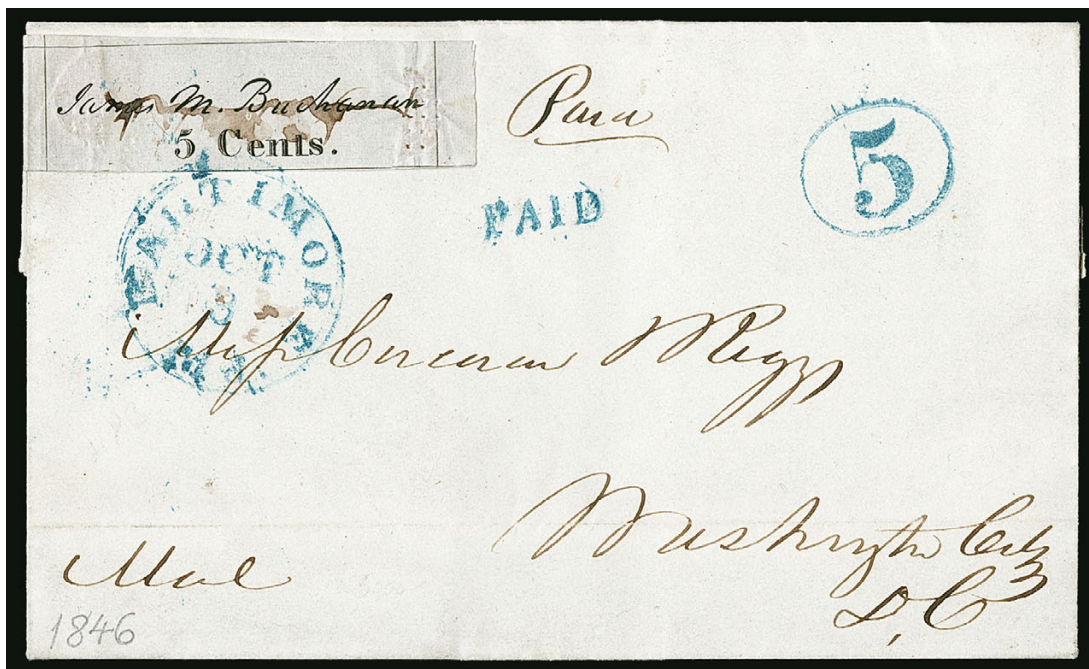 James M. Buchanan
5 Cents.
Paid
5
PAID
BALTIMORE
8
Mess Corcoran & Riggs
Washington City
D.C
Mail
1846